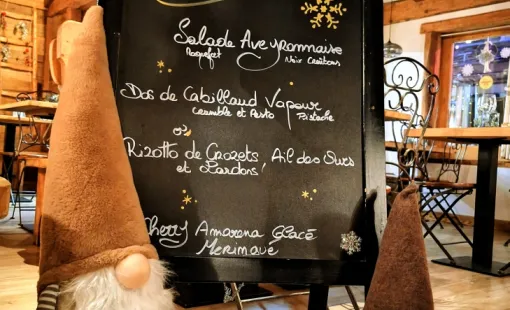 Salade Aveyronnaise
Roquefort Noix Croûtons
Dos de Cabillaud Vapeur
Crumble et Pesto Pistache
ou
Rizotto de Crozets Ail des Ours
et Lardons
Cherry Amarena Glacé
Meringue